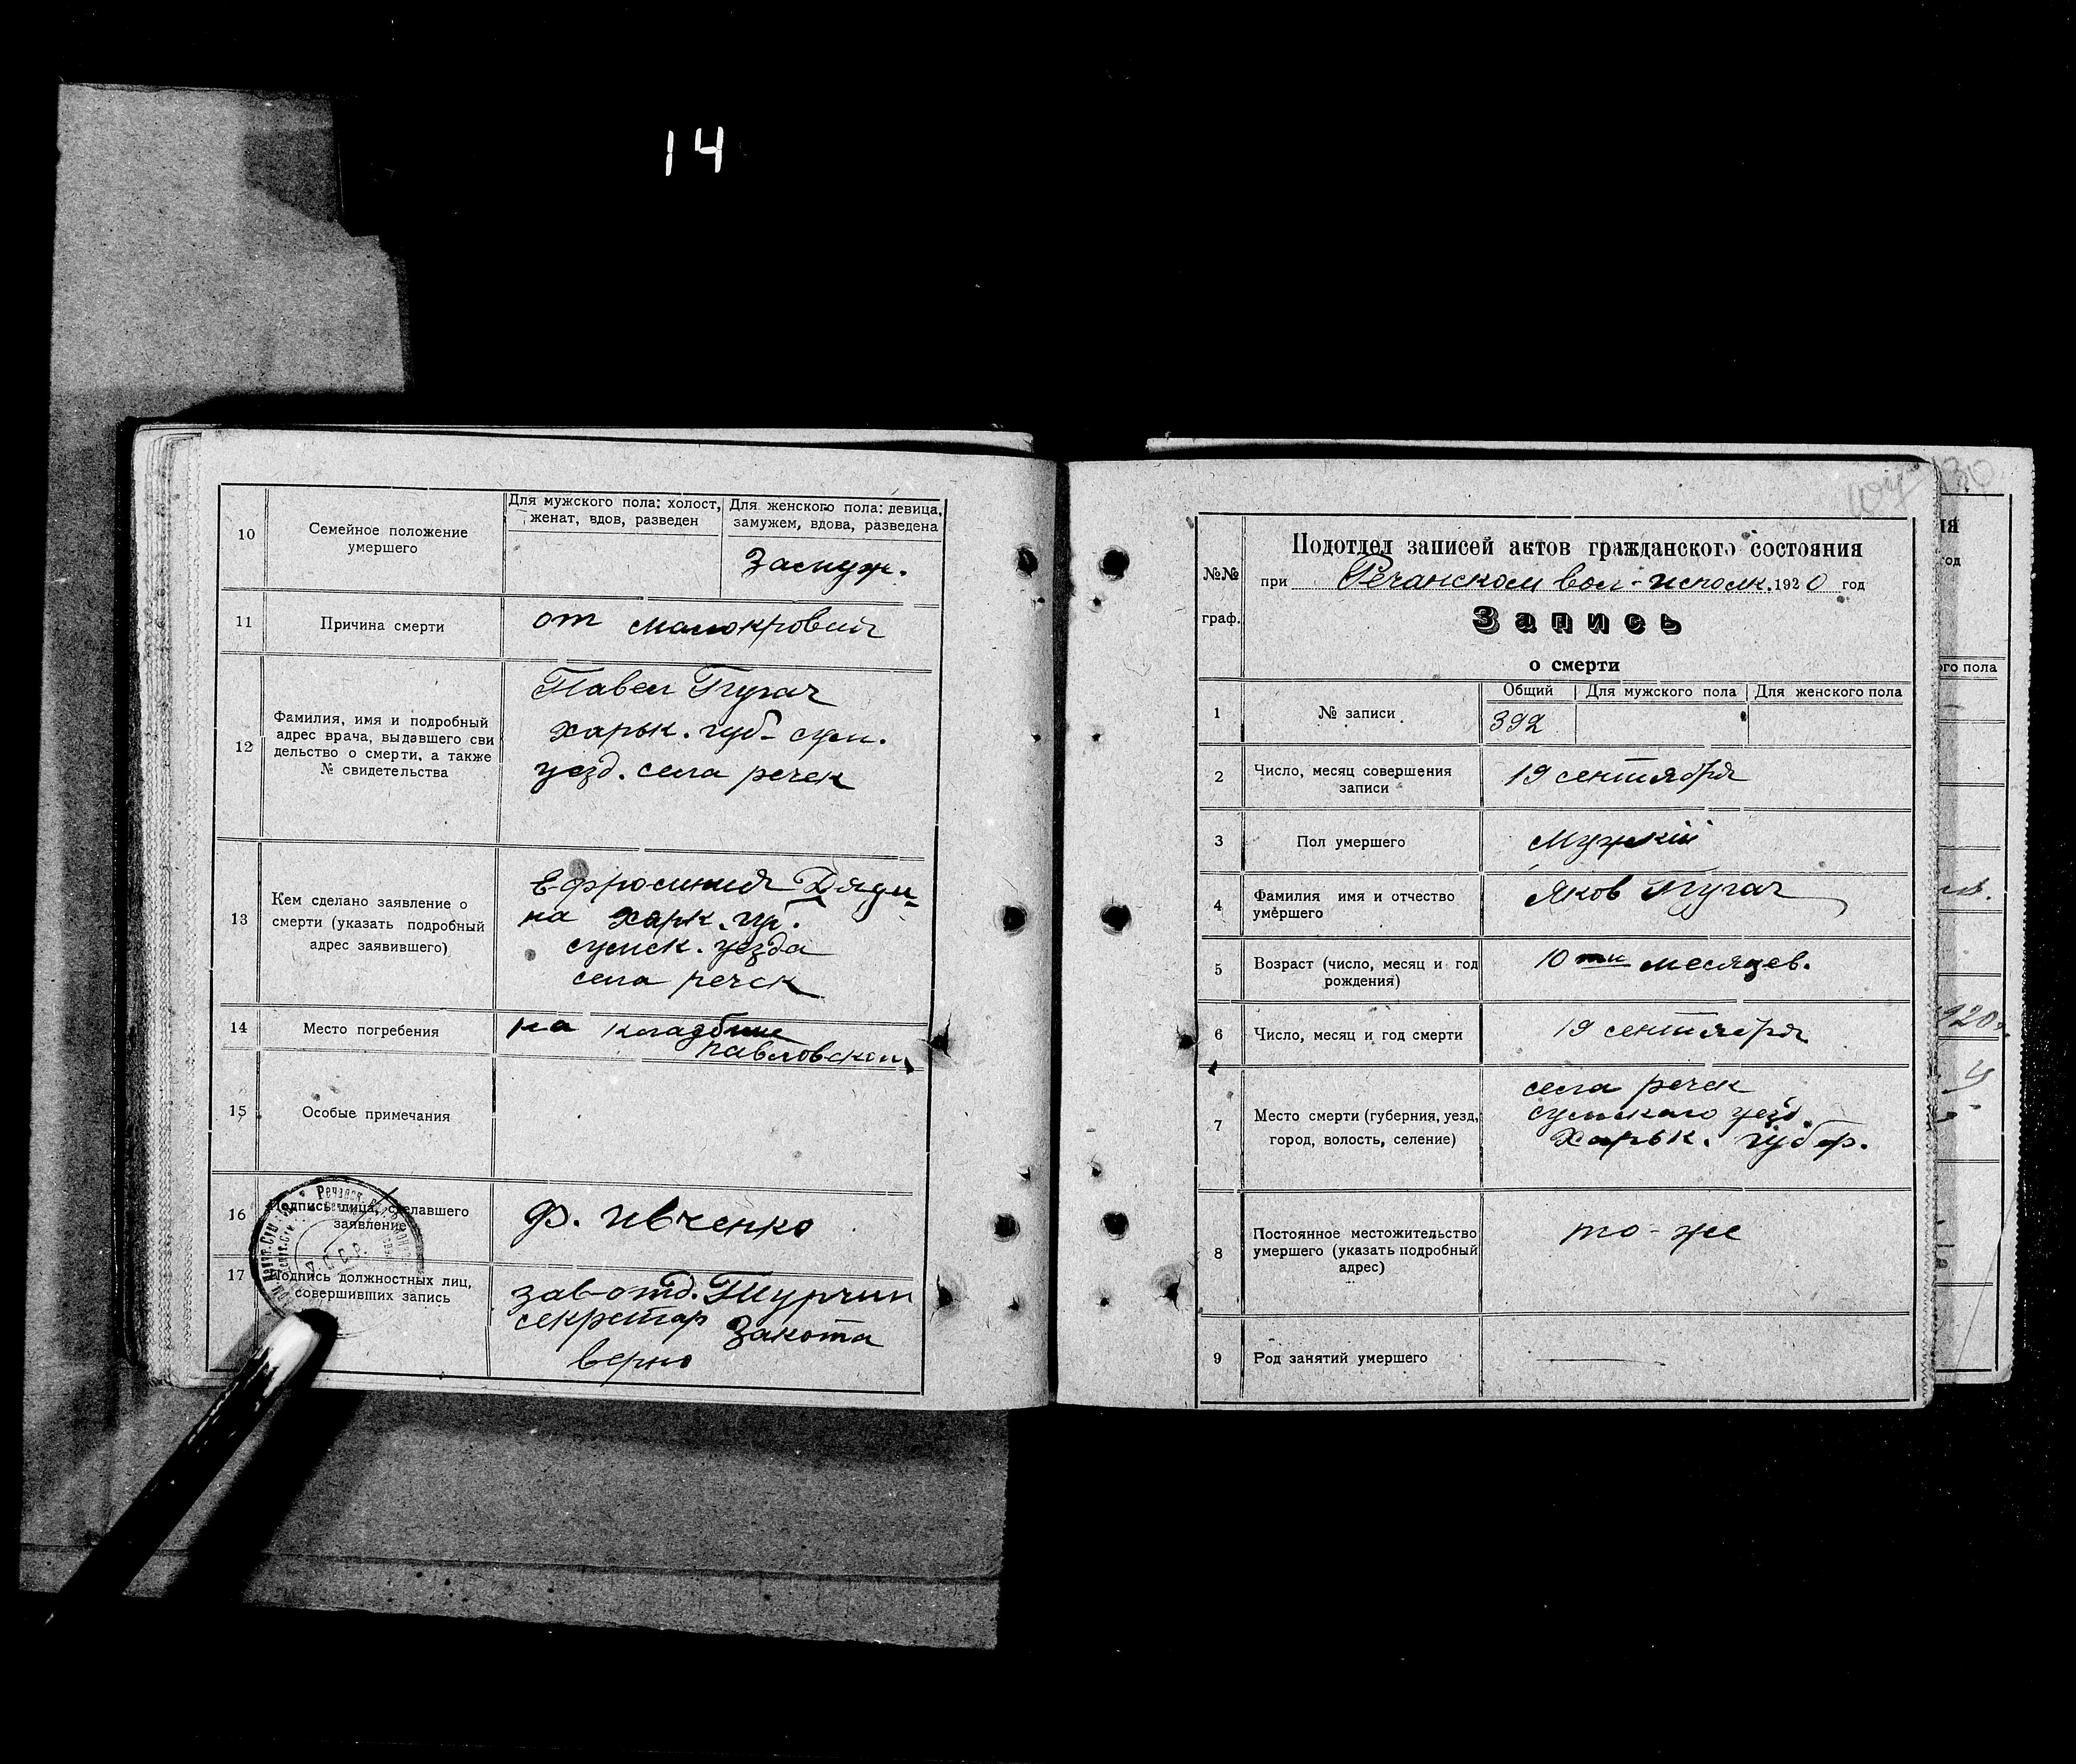 14
10
Семейное положение
умершего
Для мужского пола: холост,
женат, вдов, разведен
Для женского пола: девица,
замужем, вдова, разведена
Замуж.
11
Причина смерти
от малокровия
12
Фамилия, имя и подробный
адрес врача, выдавшего сви
дельство о смерти, а также
№ свидетельства
Павел Пугач
харьк. губ- сум.
уезд. села речек
13
Кем сделано заявление о
смерти (указать подробный
адрес заявившего)
Ефросиния Дяди-
на харк. гу.
сумск. уезда
села речек
14
Место погребения
на кладбище
павловском
15
Особые примечания
16
Подпись лица, сделавшего
заявление
Ф. Ивченко
17
Подпись должностных лиц,
совершивших запись
зав-отд. Турчин
секретар Закота
верно
130
№№
граф.
Подотдел записей актов гражданского состояния
при Речанском вол-исполк. 1920 год
Запись
о смерти
Общий
Для мужского пола
Для женского пола
1
№ записи
392
2
Число, месяц совершения
записи
19 сентября
3
Пол умершего
Мужкій
4
Фамилия имя и отчество
умершего
Яков Пугач
5
Возраст (число, месяц и год
рождения)
10 ти месяцев.
6
Число, месяц и год смерти
19 сентября
7
Место смерти (губерния, уезд,
город, волость, селение)
села речек
сумскаго уезд.
Харьк. губер.
8
Постоянное местожительство
умершего (указать подробный
адрес)
то-же
9
Род занятий умершего